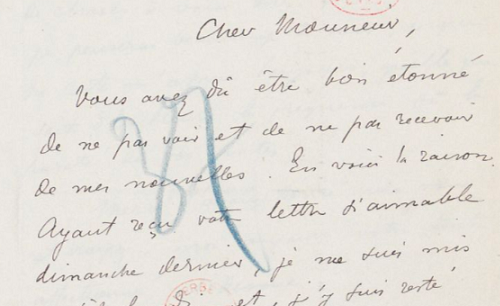 Cher Monsieur,
Vous avez dû être bien étonné
de ne pas voir et de ne pas recevoir
de mes nouvelles. En voici la raison.
Ayant reçu votre lettre d'aimable
dimanche dernier, je me suis mis
et, j'y suis resté